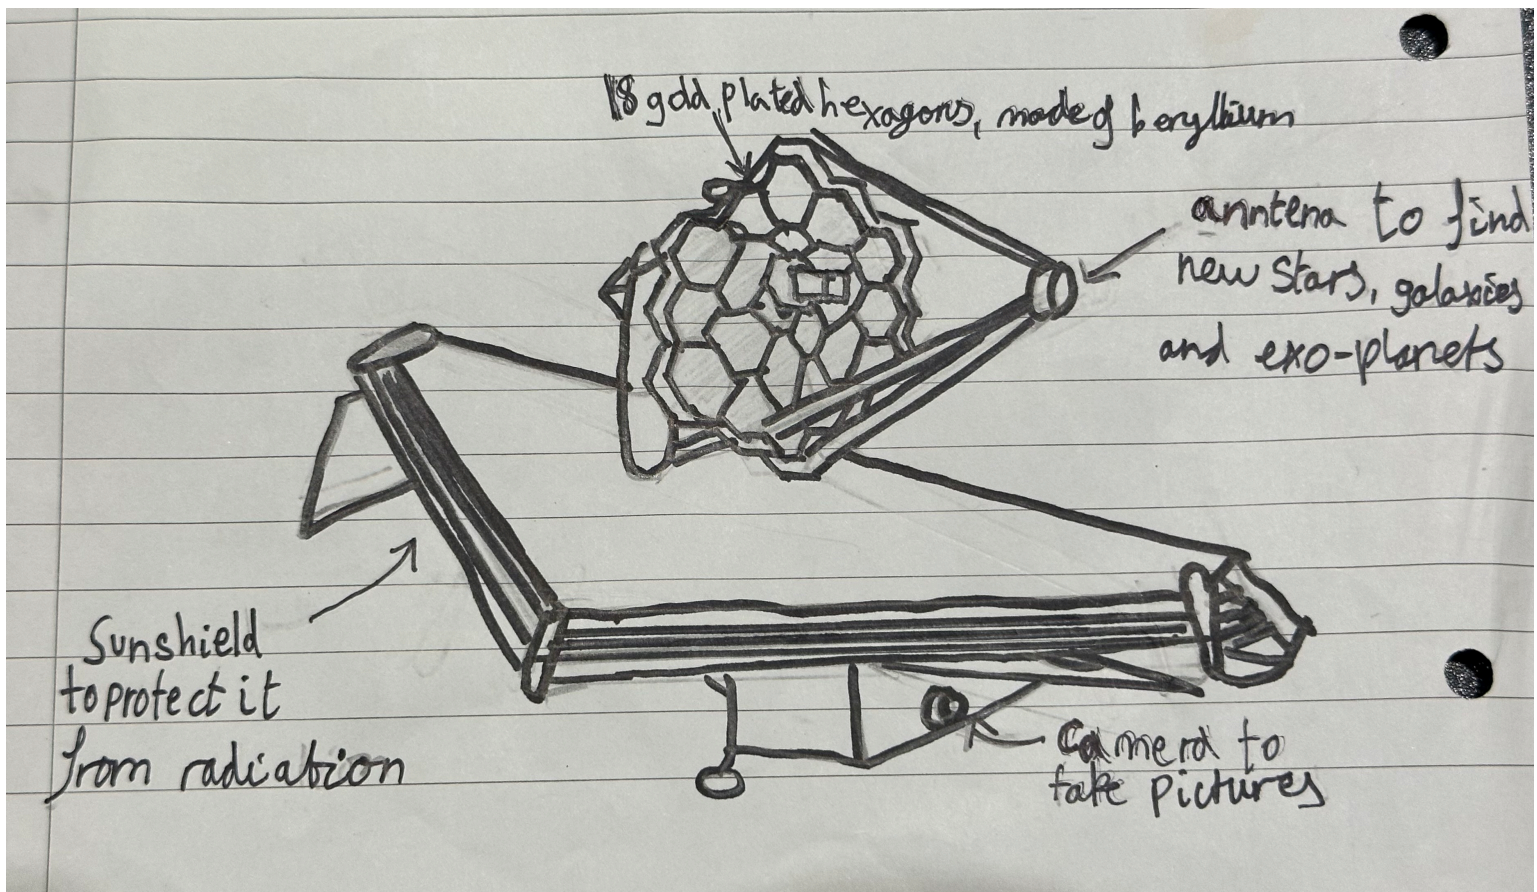 18 gold plated hexagons, made of beryllium
anntena to find
new stars, galaxies
and exo-planets
Sunshield
to protect it
from radiation
Camera to
take pictures